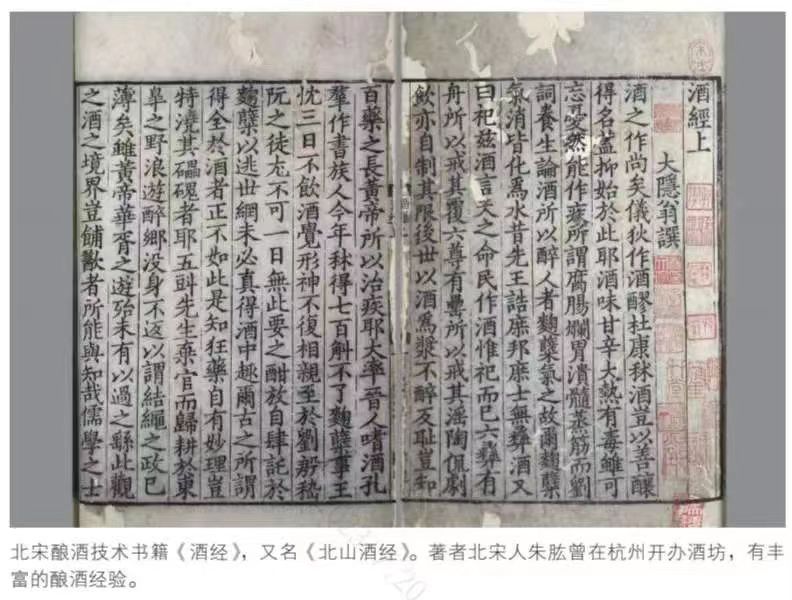 酒經上
大隱翁譔
酒之作尚矣儀狄作酒醪杜康秫酒豈以善釀
得名蓋抑始於此耶酒味甘辛大熱有毒雖可
忘憂然能作疾所謂腐腸爛胃潰髓蒸筋而劉
詞養生論酒所以醉人者麴櫱氣之故爾麴櫱
氣消皆化為水昔先王誥庶邦庶士無彝酒又
曰祀茲酒言天之命民作酒惟祀而已六彝有
舟所以戒其覆六尊有罍所以戒其淫陶侃劇
飲亦自制其限後世以酒為漿不醉反恥豈知
百藥之長黃帝所以治疾耶大率晉人嗜酒孔
羣作書族人今年秫得七百斛不了麴櫱事王
忱三日不飲酒覺形神不復相親至於劉殷嵇
阮之徒尤不可一日無此要之酣放自肆託於
麴櫱以逃世網未必真得酒中趣爾古之所謂
得全於酒者正不如此是知狂藥自有妙理豈
特澆其礧磈者耶五斗先生棄官而歸耕於東
臯之野浪遊醉鄉沒身不返以謂結繩之政已
薄矣雖黃帝華胥之遊殆未有以過之繇此觀
之酒之境界豈餔歠者所能與知哉儒學之士
北宋酿酒技术书籍《酒经》，又名《北山酒经》。著者北宋人朱肱曾在杭州开办酒坊，有丰
富的酿酒经验。